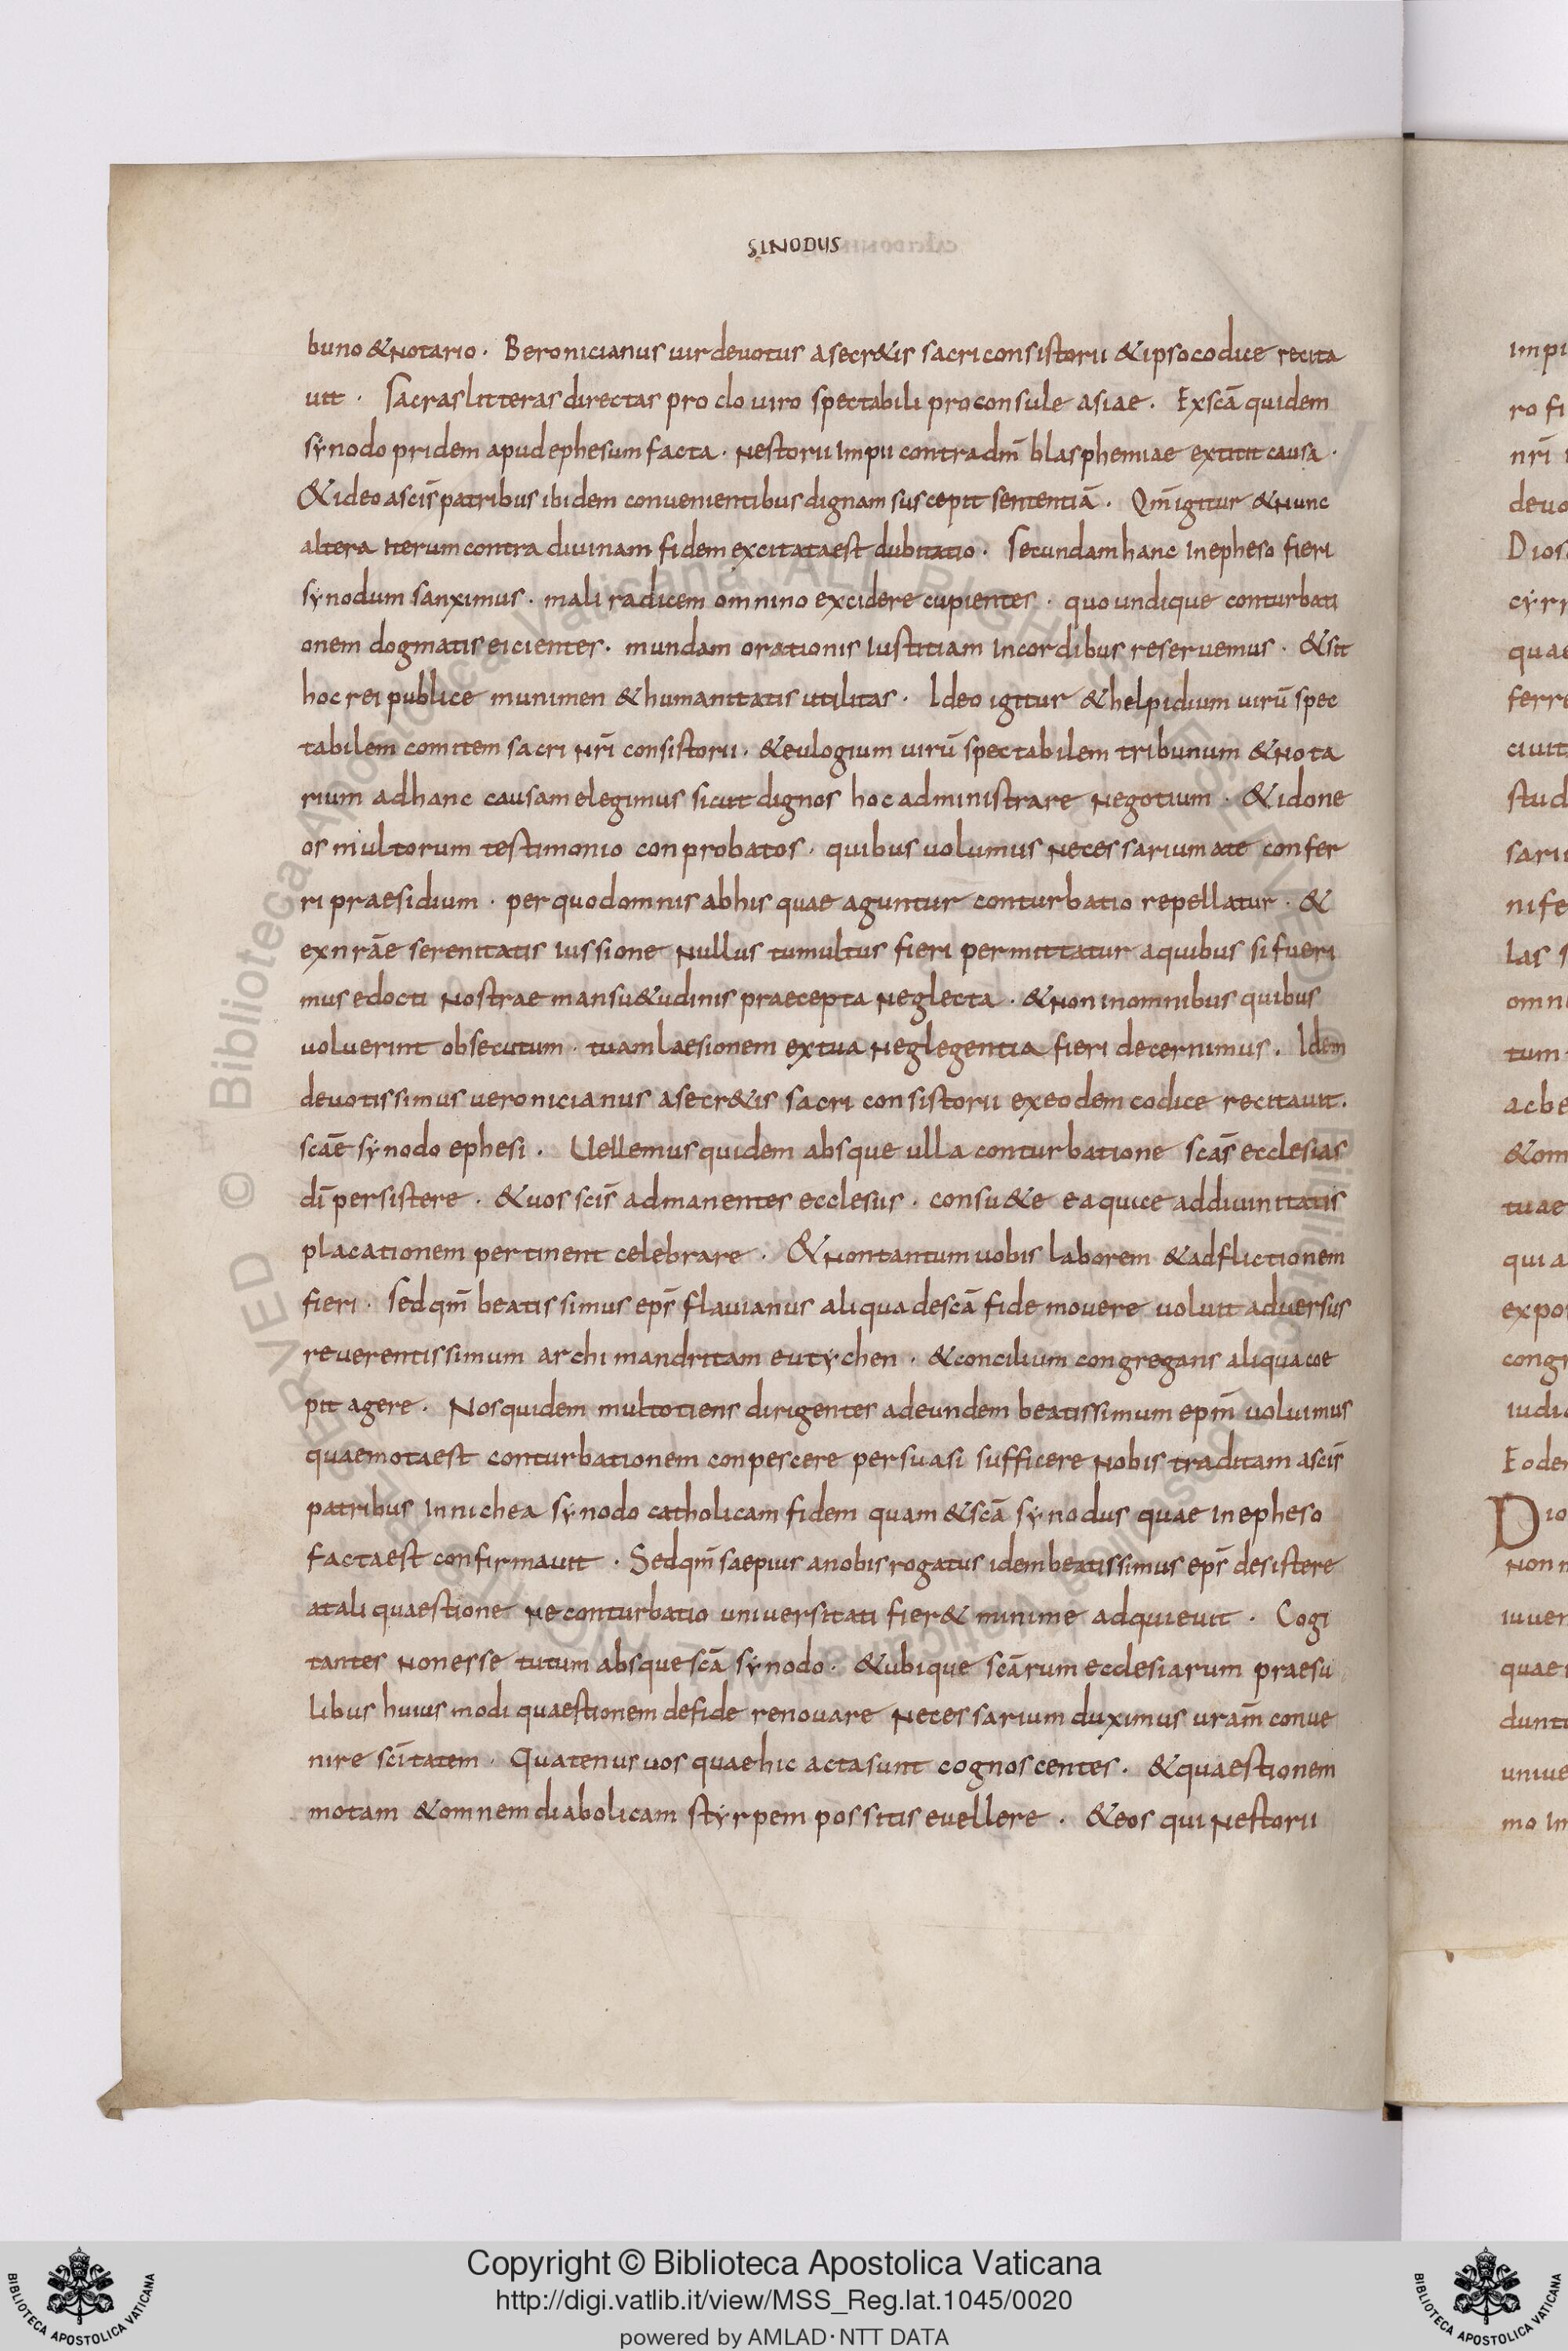 SINODUS
buno & notario. Beronicianus uir deuotus a secr&is sacri consistorii & ipso codice recita
uit. Sacras litteras directas proclo uiro spectabili proconsule asiae. Ex scā quidem
synodo pridem apud ephesum facta. nestorii impii contra dm̄ blasphemiae extitit causa.
& ideo a scīs patribus ibidem conuenientibus dignam suscepit sententiā. Qm̄ igitur & nunc
altera iterum contra diuinam fidem excitata est dubitatio. Secundam hanc in epheso fieri
synodum sanximus. mali radicem omnino excidere cupientes. quo undique conturbati
onem dogmatis eicientes. mundam orationis iustitiam in cordibus reseruemus. & sit
hoc rei publice munimen & humanitatis utilitas. Ideo igitur & helpidium uirū spec
tabilem comitem sacri nr̄i consistorii. & eulogium uirū spectabilem tribunum & nota
rium ad hanc causam elegimus sicut dignos hoc administrare negotium. & idone
os multorum testimonio conprobatos. quibus uolumus necessarium a te confer
ri praesidium. per quod omnis ab his quae aguntur conturbatio repellatur. &
ex nrāe serenitatis iussione nullus tumultus fieri permittatur a quibus si fueri
mus edocti nostrae mansu&udinis praecepta neglecta. & non in omnibus quibus
uoluerint obsecutum. tuam laesionem ex tua neglegentia fieri decernimus. Idem
deuotissimus ueronicianus a secr&is sacri consistorii ex eodem codice recitauit.
scāe synodo ephesi. Uellemus quidem absque ulla conturbatione scās ecclesias
dī persistere. & uos scīs admanentes ecclesiis. consu&e ea quice ad diuinitatis
placationem pertinent celebrare. & non tantum uobis laborem & adflictionem
fieri. Sed qm̄ beatissimus eps̄ flauianus aliqua de scā fide mouere uoluit aduersus
reuerentissimum archimandritam eutychen. & concilium congregans aliqua coe
pit agere. Nos quidem multotiens dirigentes ad eundem beatissimum epm̄ uoluimus
quae mota est conturbationem conpescere persuasi sufficere nobis traditam a scīs
patribus in nichea synodo catholicam fidem quam & scā synodus quae in epheso
facta est confirmauit. Sed qm̄ saepius a nobis rogatus idem beatissimus eps̄ desistere
a tali quaestione ne conturbatio uniuersitati fier& minime adquieuit. Cogi
tantes non esse tutum absque scā synodo. & ubique scārum ecclesiarum praesu
libus huiusmodi quaestionem de fide renouare necessarium duximus uram̄ conue
nire scītatem. Quatenus uos quae hic acta sunt cognoscentes. & quaestionem
motam & omnem diabolicam styrpem possitis euellere. & eos qui nestorii
Copyright © Biblioteca Apostolica Vaticana
http://digi.vatlib.it/view/MSS_Reg.lat.1045/0020
powered by AMLAD·NTT DATA
BIBLIOTECA APOSTOLICA VATICANA
BIBLIOTECA APOSTOLICA VATICANA